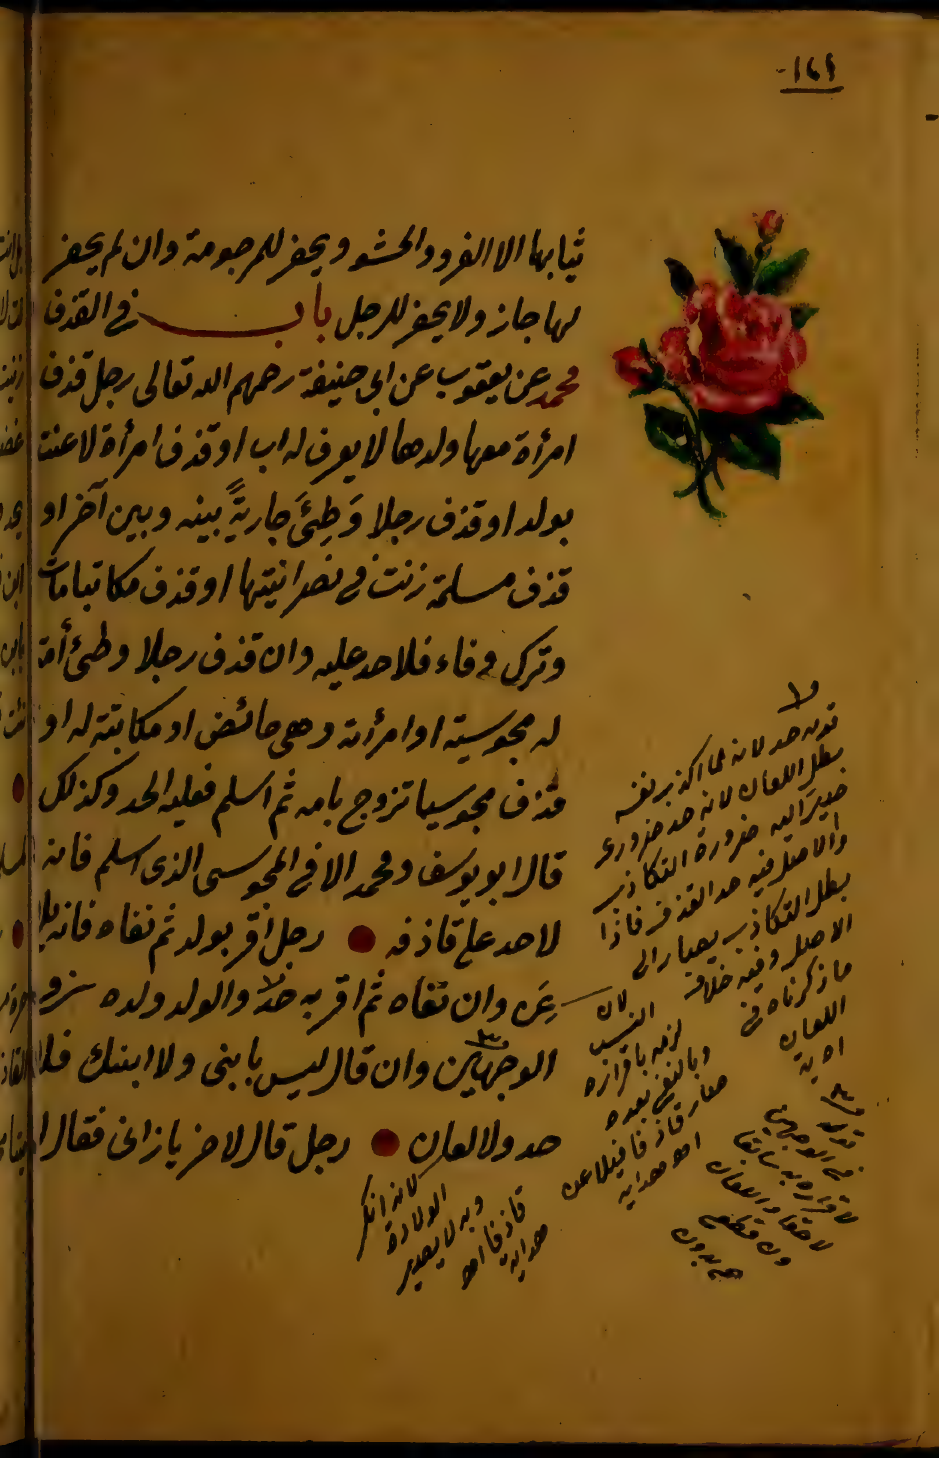 ١٤٩
ثيابها الا الفرو والحشو ويحفر للمرجومة وان لم يحفر
لها جاز ولا يحفر للرجل باب في القذف
محمد عن يعقوب عن ابي حنيفة رحمهم الله تعالى رجل قذف
امرأة معها ولدها لا يعرف له اب او قذف امرأة لاعنت
بولد او قذف رجلا وَطِئَ جاريةً بينه وبين آخر او
قذف مسلمة زنت في نصرانيتها او قذف مكاتبا مات
وترك وفاء فلا حد عليه وان قذف رجلا وطئ أمة
له مجوسية او امرأته وهي حائض او مكاتبة له او
قذف مجوسيا تزوج بامه ثم اسلم فعليه الحد وكذلك
قال ابو يوسف ومحمد الا في المجوسي الذي اسلم فانه
لا حد على قاذفه رجل اقر بولد ثم نفاه فانه يلا
عن وان نفاه ثم اقر به حُدّ والولد ولده في
الوجهين وان قال ليس بابني ولا ابنك فلا
حد ولا لعان رجل قال لاخر يا زاني فقال لا
قوله حد لانه لما اكذب نفسه
بطل اللعان لانه حد ضروري
صير اليه ضرورة التكاذب
والاصل فيه حد القذف فاذا
بطل التكاذب يصار الى
الاصل وفيه خلاف
ما ذكرناه في
اللعان
لان
النسب
لزمه باقراره
وبالنفي بعده
صار قاذفا فيلاعن
اهـ هدايه
قوله
في الوجهين
لاقراره به سابقا
لانه انكر
الولادة
وبه لا يصير
قاذفا اهـ
هدايه